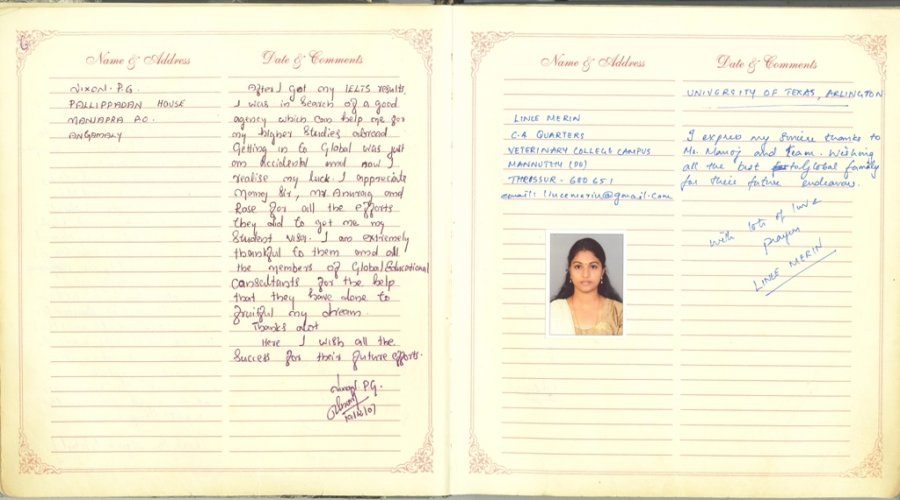 Name & Address
Date & Comments
NIXON. P.G.
PALLIPPADAN HOUSE
MANJAPRA P.O.
ANGAMALY
After I got my IELTS results,
I was in search of a good
agency which can help me for
my higher studies abroad.
Getting in to Global was just
an accidental and now I
realise my luck. I appreciate
Manoj Sir, Mr. Anurag and
Rose for all the efforts
they did to get me my
Student visa. I am extremely
thankful to them and all
the members of Global Educational
Consultants for the help
that they have done to
fruitful my dream.
Thanks alot
Here I wish all the
Success for their future efforts.
Nixon P.G.
Name & Address
Date & Comments
UNIVERSITY OF TEXAS, ARLINGTON
LINCE MERIN
C-4 QUARTERS
VETERINARY COLLEGE CAMPUS
MANNUTHY (PO)
THRISSUR - 680 651
email: lincemerin@gmail.com
I express my sincere thanks to
Mr. Manoj and team. Wishing
all the best to Global family
for their future endeavours.
With lots of love
prayers
LINCE MERIN